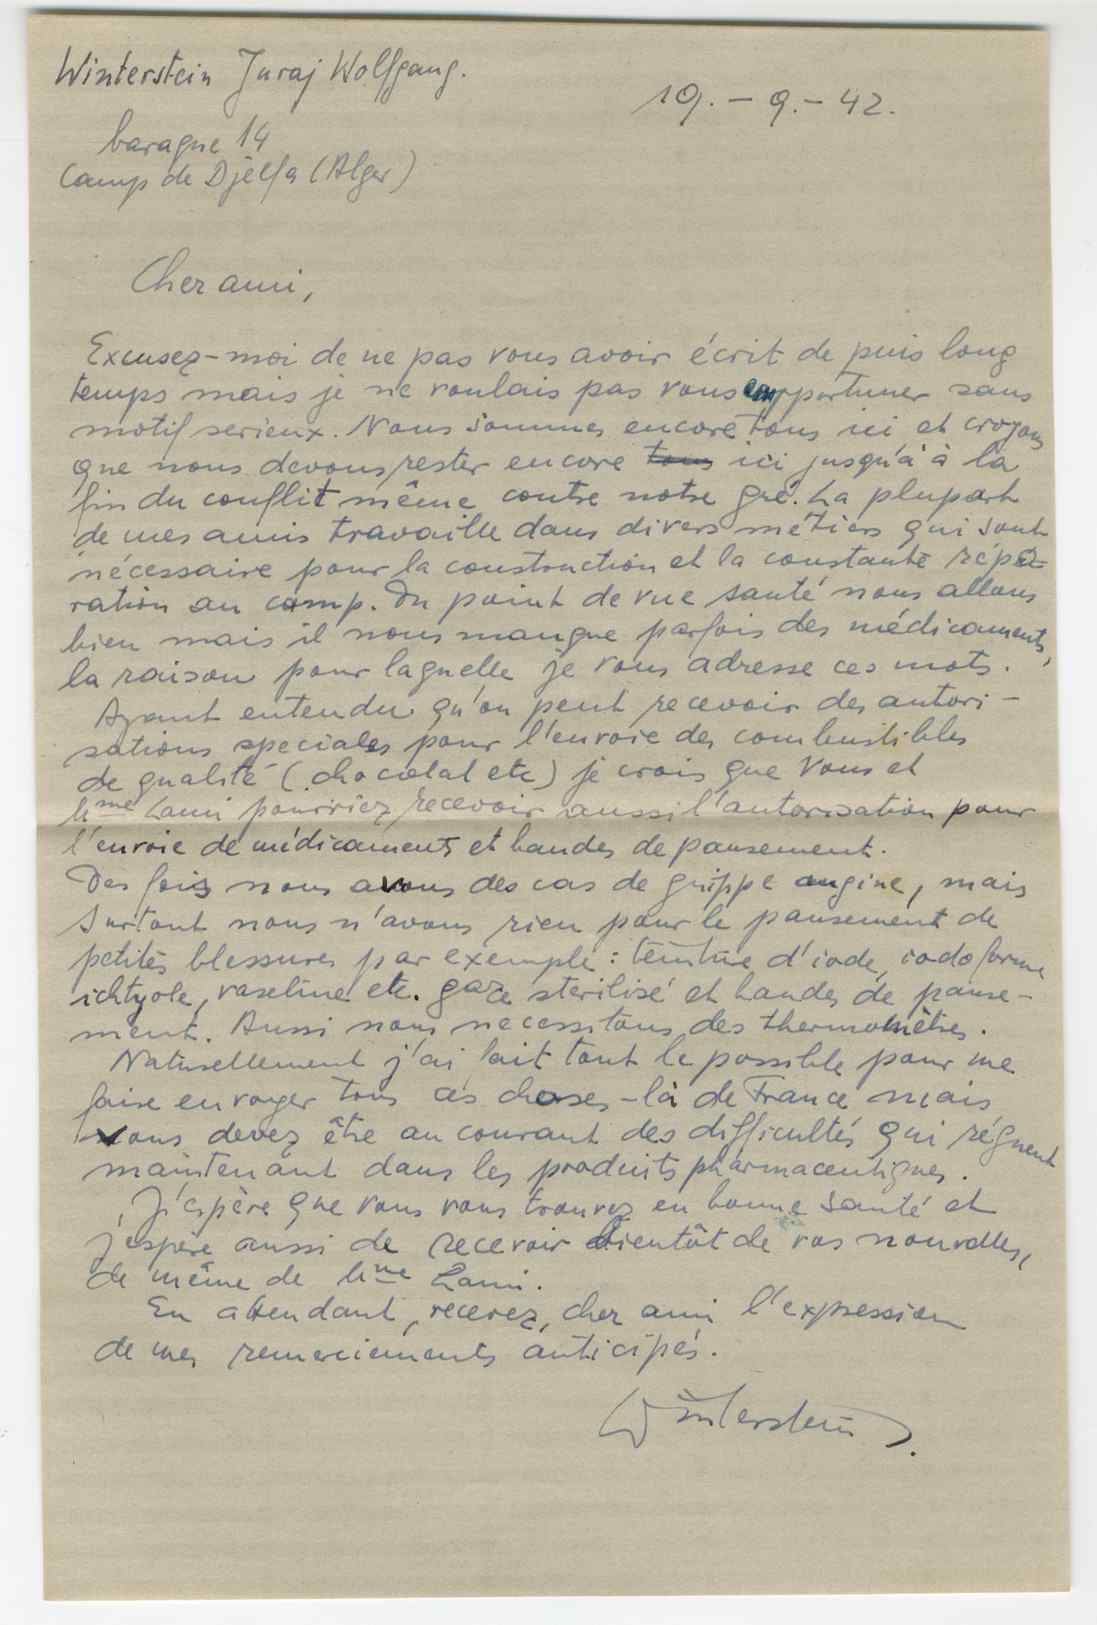 Winterstein Juraj Wolfgang.
19. - 9. - 42.
baraque 14
Camp de Djelfa (Alger)
Cher ami,
Excusez-moi de ne pas vous avoir écrit de puis long
temps mais je ne voulais pas vous sans
motif serieux. Nous sommes encore tous ici et croyons
que nous devons rester encore tous ici jusqu'à à la
fin du conflit même contre notre gré. La plupart
de mes amis travaille dans divers métiers qui sont
nécessaire pour la construction et la constante répa-
ration au camp. Du point de vue santé nous allons
bien mais il nous manque parfois des médicaments,
la raison pour laquelle je vous adresse ces mots.
Ayant entendu qu'on peut recevoir des autori-
sations speciales pour l'envoie des combustibles
de qualité (chocolat etc) je crois que Vous et
Mme Lami pourriez recevoir aussi l'autorisation pour
l'envoie de médicaments et bandes de pansement.
Des fois nous avons des cas de grippe angine, mais
surtout nous n'avons rien pour le pansement de
petites blessures par exemple: teintûre d'iode, iodoforme
ichtyole, vaseline etc. gaze sterilisé et bandes de panse-
ment. Aussi nous necessitons des thermomètres.
Naturellement j'ai fait tout le possible pour me
faire envoyer tous ces choses-là de France mais
Vous devez être au courant des difficultés qui régnent
maintenant dans les produits pharmaceutiques.
J'éspère que vous vous trouvez en bonne santé et
j'espère aussi de recevoir bientôt de vos nouvelles,
de même de Mme Lami.
En attendant, recevez, cher ami l'expression
de mes remerciements anticipés.
Winterstein J.